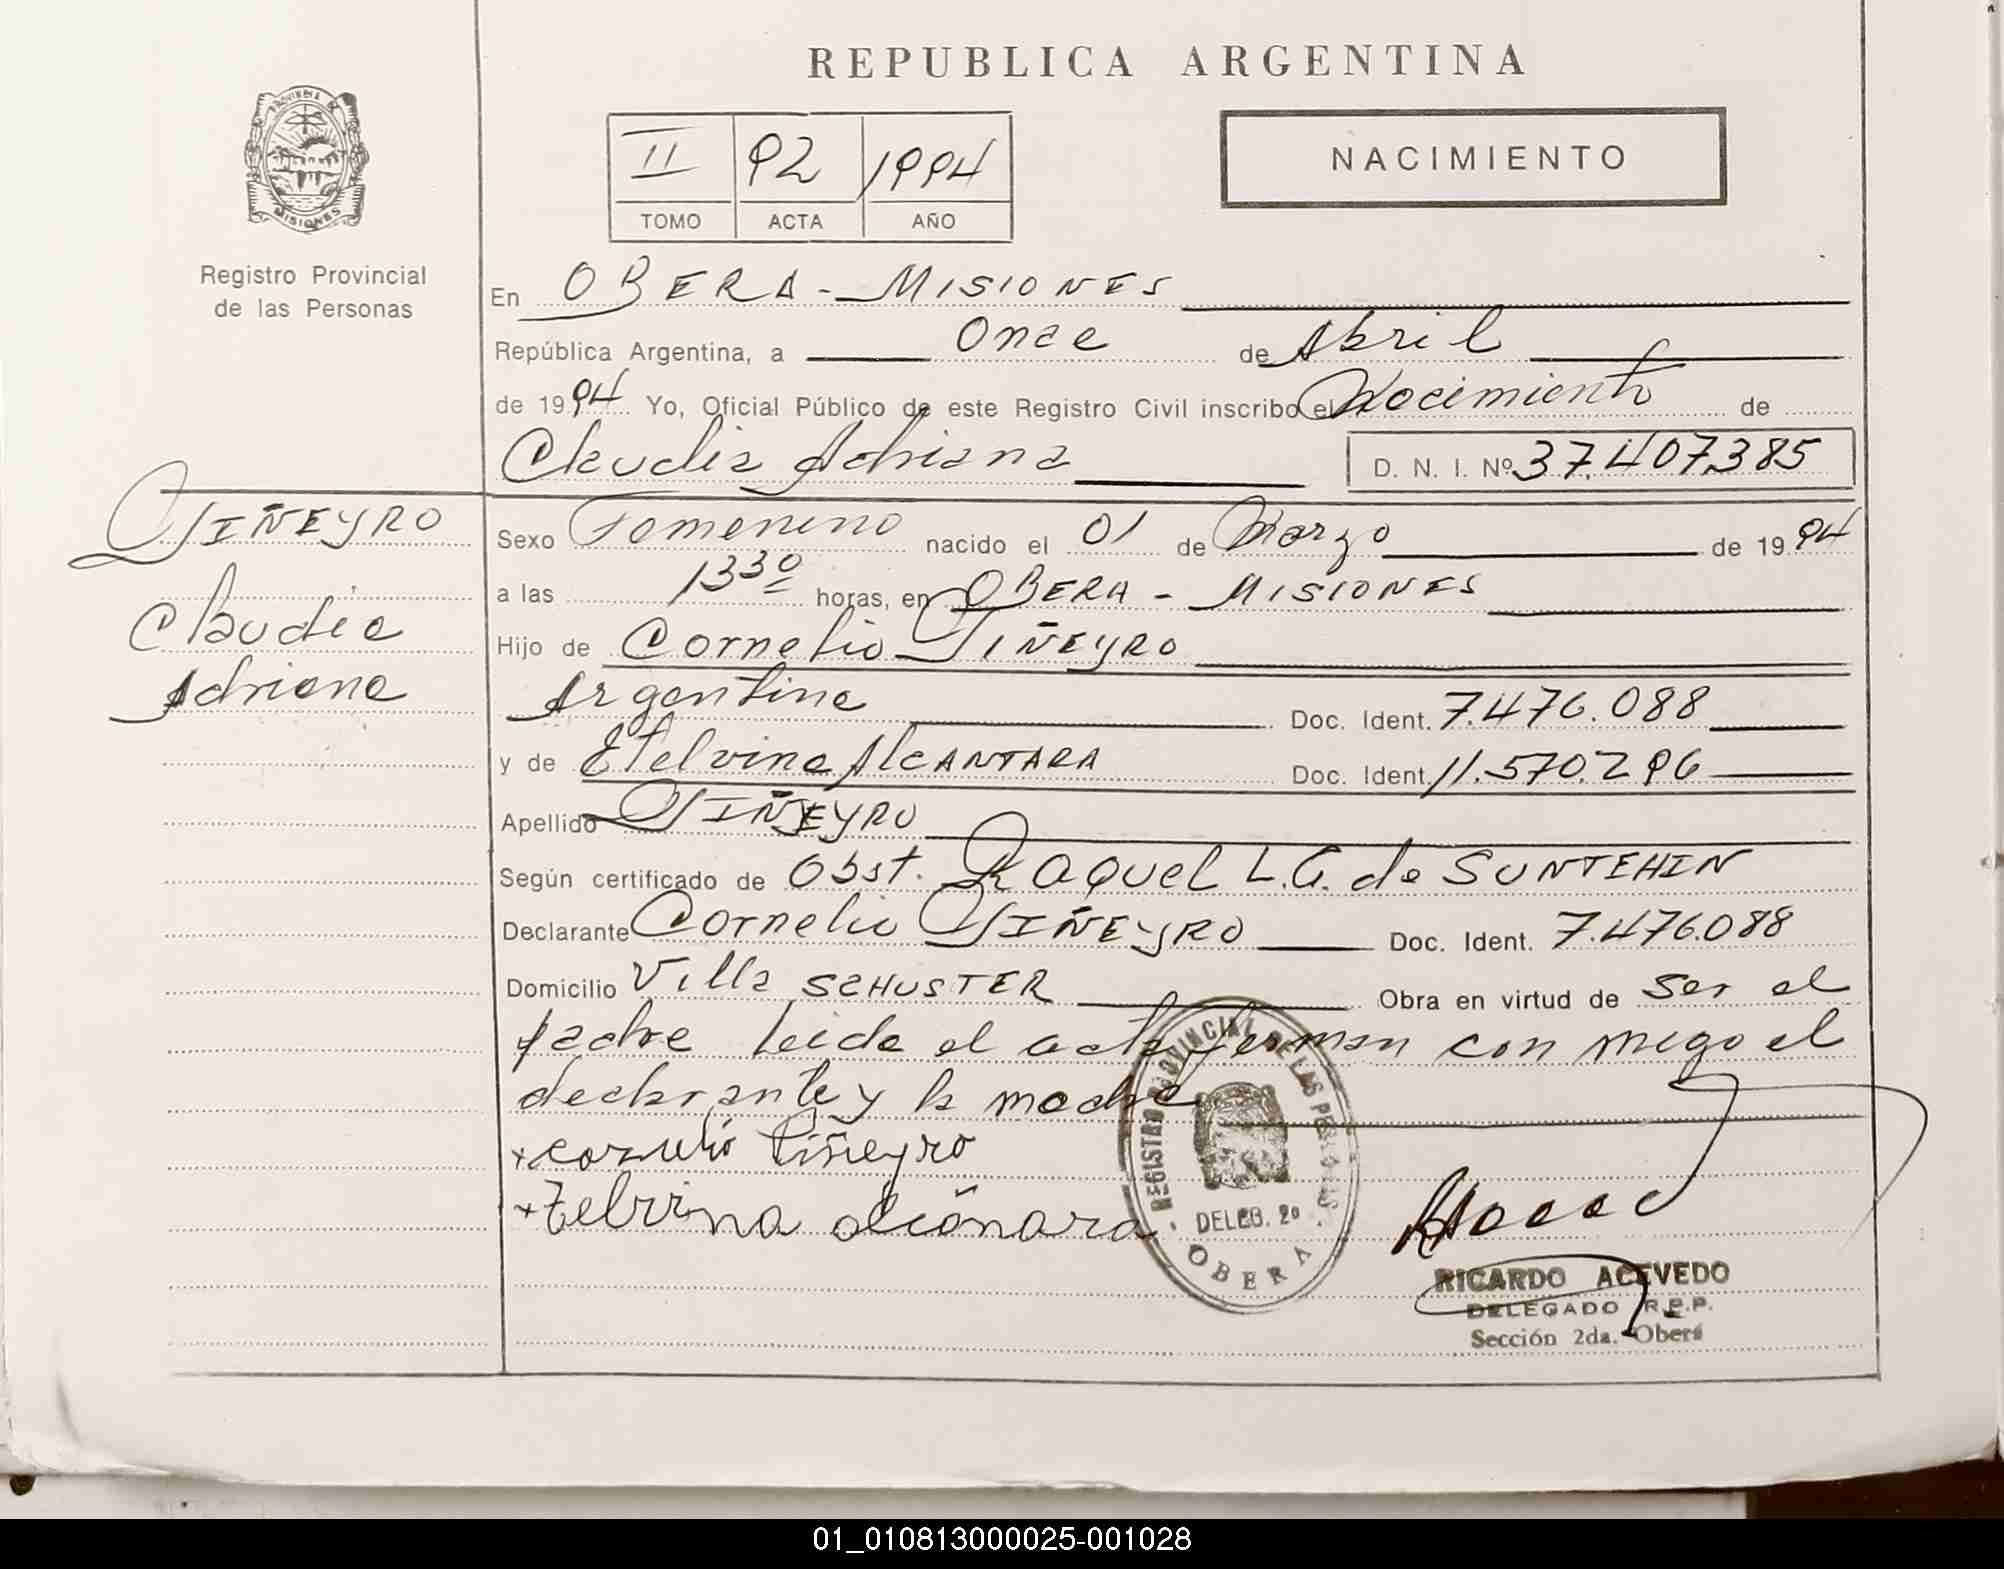 REPUBLICA ARGENTINA
PROVINCIA DE
MISIONES
II 92 1994
TOMO ACTA AÑO
NACIMIENTO
Registro Provincial
de las Personas
En OBERA - MISIONES
República Argentina, a Once de Abril
de 1994 Yo, Oficial Público de este Registro Civil inscribo el Nacimiento de
Claudia Adriana D. N. I. Nº 37.407.385
PIÑEYRO
Claudia
Adriana
Sexo Femenino nacido el 01 de Marzo de 1994
a las 13³⁰ horas, en OBERA - MISIONES
Hijo de Cornelio PIÑEYRO
Argentina Doc. Ident. 7.476.088
y de Etelvina AlCANTARA Doc. Ident. 11.570.296
Apellido PIÑEYRO
Según certificado de Obst. Raquel L.G. de
Declarante Cornelio PIÑEYRO Doc. Ident. 7.476.088
Domicilio Villa SCHUSTER Obra en virtud de ser el
padre leida el acta firman con migo el
declarante y la madre
+ cornelio Piñeyro
REGISTRO PROVINCIAL DE LAS PERSONAS
DELEG. 2ª
OBERA
RICARDO ACEVEDO
DELEGADO R.P.P.
Sección 2da. Oberá
01_010813000025-001028